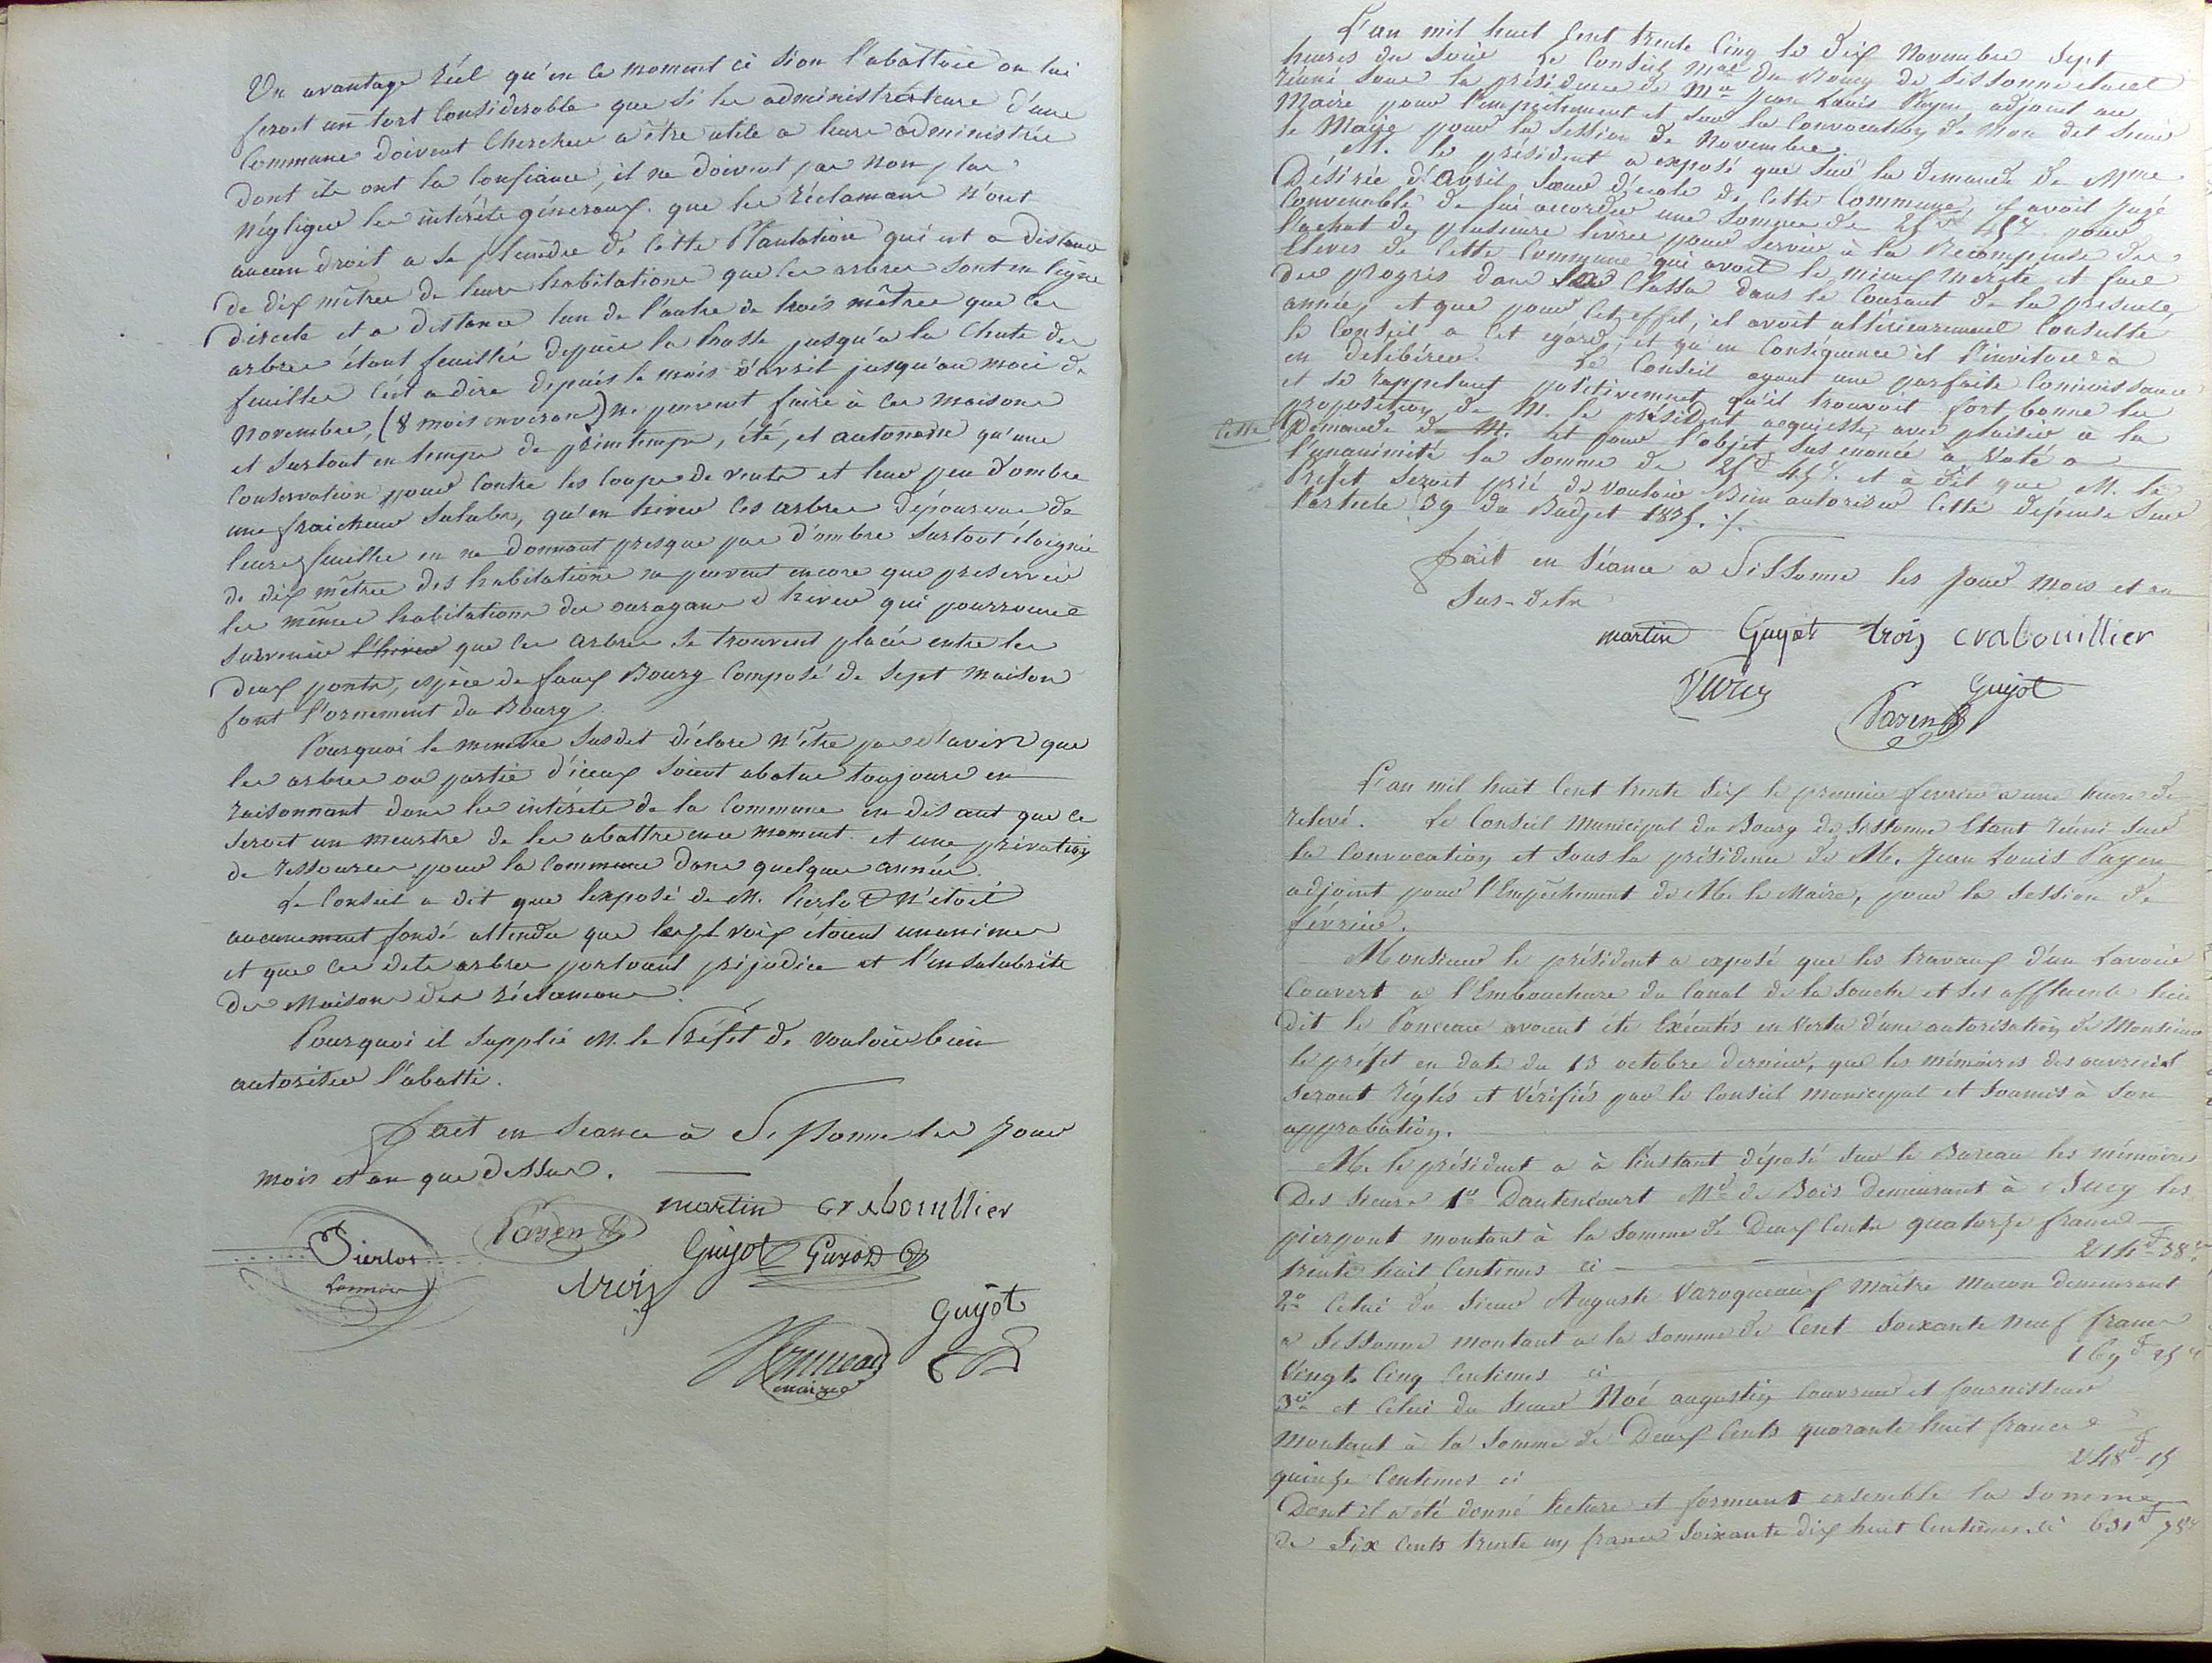 Un avantage réel qu'en ce moment ci si on l'abattoit on lui
feroit un tort Considerable que si les administrateurs d'une
Commune doivent Chercher a être utile a leurs administrés
dont ils ont la Confiance, il ne doivent pas non plus
négliger les intérêts géneraux. que les réclamans n'ont
aucun droit a se plaindre de Cette Plantation qui est a distance
de dix mêtres de leurs habitations que les arbres sont en ligne
directe et a distance l'un de l'autre de trois mêtres que les
arbres étant feuillés depuis la pousse jusqu'a la Chute des
feuilles C'est a dire depuis le mois d'avril jusqu'au mois de
Novembre, (8 mois environ) ne peuvent faire à ces maisons
et surtout en temps de printemps, été, et automne qu'une
Conservation pour Contre les Coups de vents et leur peu d'ombre
une fraicheur salubre, qu'en hiver ces arbres dépourvus de
leurs feuilles en ne donnant presque pas d'ombre surtout éloignés
de dix mêtres des habitations ne peuvent encore que preserver
les mêmes habitations des ouragans d'hiver qui pourroient
survenir l'hiver que ces arbres se trouvent placés entre les
deux ponts, espèce de faux Bourg Composé de sept maison
font l'ornement du Bourg.
Pourquoi le membre susdit déclare n'être pas d'avis que
les arbres ou partie d'iceux soient abatus toujours en
raisonnant dans les intérêts de la Commune en disant que ce
seroit un meurtre de les abattre en ce moment et une privation
de ressources pour la Commune dans quelques années.
Le Conseil a dit que l'exposé de M. Pierlot n'étoit
aucunement fondé attendu que les sept voix étoient unanimes
et que ces dits arbres portoient préjudice et l'insalubrité
des Maisons des réclamans.
Pourquoi il supplie M. le Préfet de vouloir bien
autoriser l'abatti.
Fait en Seance à Sissonne les Jour
mois et an que dessus.
martin Crabouillier
Pierlot Payen
Guyot Guyot
trois
Guyot
maire
L'an mil huit Cent trente Cinq le dix Novembre Sept
heures du Soir Le Conseil Mal du Bourg de Sissonne étant
réuni sous la présidence de Mr Jean Louis Payen adjoint au
Maire pour l'empêchement et sur la Convocation de Mon dit Sieur
le Maire pour la session de Novembre.
M. le président a exposé que sur la demande de Mme
Désirée d'Avril Sœur d'école de Cette Commune, il avoit Jugé
Convenable de lui accorder une Somme de 25f 45c pour
l'achat de plusieurs livres pour servir à la Récompense des
Eleves de Cette Commune qui avoit le mieux Mérité et fait
des progrés dans Sa Classe dans le Courant de la presente
année, et que pour Cet effet, il avoit ultérieurement Consulté
le Conseil a Cet égard, et qu'en Conséquence il l'invitoit à
en délibérer. Le Conseil ayant une parfaite Connoissance
et se rappelant positivement qu'il trouvoit fort bonne la
proposition de M. le président acquiesse avec plaisir à la
Cette Demande de M. et pour l'objet sus énoncé a Voté a
l'unanimité la Somme de 25f 45c. et à dit que M. le
Préfet seroit prié de vouloir Bien autoriser Cette dépense sur
l'article 39 du Budjet 1835. ./.
Fait en Séance a Sissonne les Jour mois et an
Sus-dits
martin Guyot trois Crabouillier
Guyot
Payen
L'an mil huit Cent trente Six le premier fevrier a une heure de
relevé. Le Conseil Municipal du Bourg de Sissonne Etant réuni sur
la Convocation et sous la présidence de M. Jean Louis Payen
adjoint pour l'Empêchement de M. le Maire, pour la session de
février.
Monsieur le président a exposé que les travaux d'un Lavoir
Couvert a l'Embouchure du Canal de la Souche et ses affluents lieu
dit le Ponceau avoient été Exécutés en Vertu d'une autorisation de Monsieur
le préfet en date du 13 octobre dernier, que les mémoires des ouvriers
seront réglés et Vérifiés par le Conseil Municipal et soumis à son
approbation.
M. le président a à l'instant déposé sur le Bureau les mémoires
Des Sieurs 1º Dautencourt Md de Bois demeurant à Sucy les
pierpont montant à la Somme de Deux Cents quatorze francs
trente huit Centimes ci 214f 38c
2º Celui du Sieur Auguste Varoqueaux Maitre Macon demeurant
a Sissonne montant a la Somme de Cent Soixante neuf francs
Vingt Cinq Centimes ci 169f 25c
3º et Celui du Sieur Noé augustin Couvreur et fournisseur
Montant à la Somme de Deux Cents quarante huit francs
quinze Centimes ci 248f 15
Dont il a été donné Lecture et formant ensemble la Somme
de Six Cents trente un francs soixante dix huit Centimes ci 631f 78c